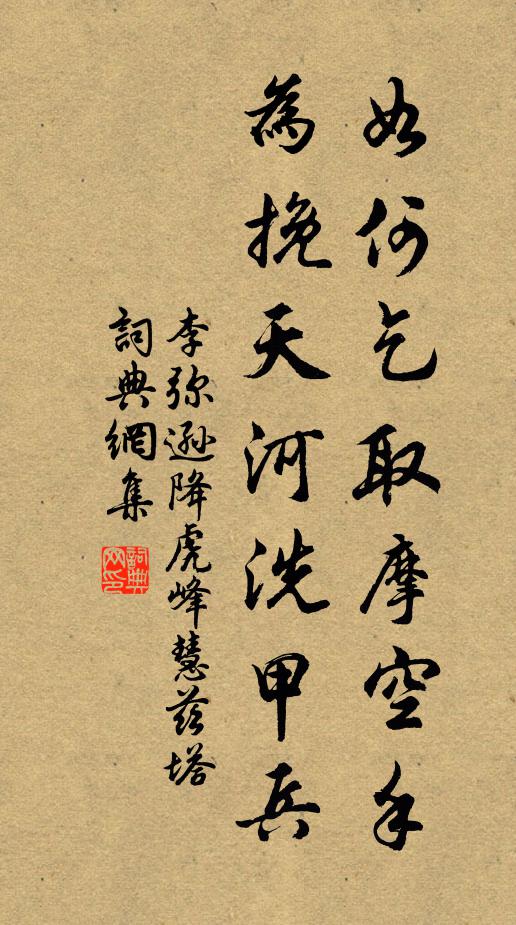 如何乞取摩空手
為挽天河洗甲兵
李弥遜降虎峰慧慈塔
詞典網集
詞典网印